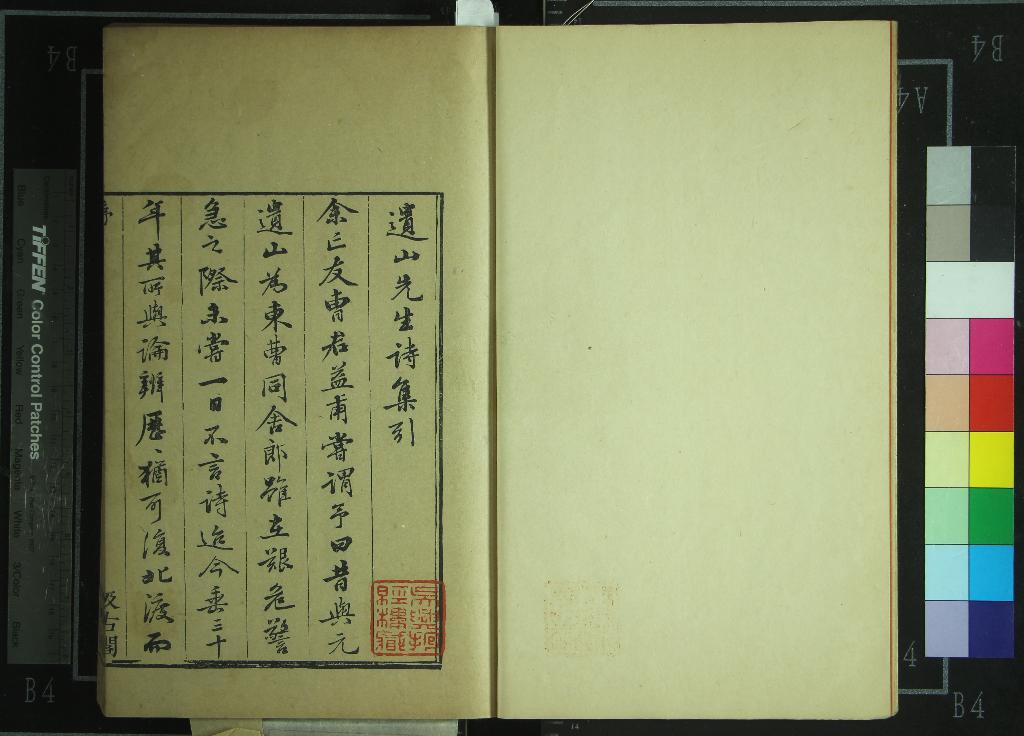 遺山先生詩集引
余亡友曹君益甫嘗謂予曰昔與元
遺山為東曹同舍郎雖在艱危警
急之際未嘗一日不言詩迄今垂三十
年其所與論辨歷〻猶可復北渡而
序
汲古閣
B4
B4
A4
4
B4
B4
TIFFEN Color Control Patches
Blue Cyan Green Yellow Red Magenta White 3/Color Black